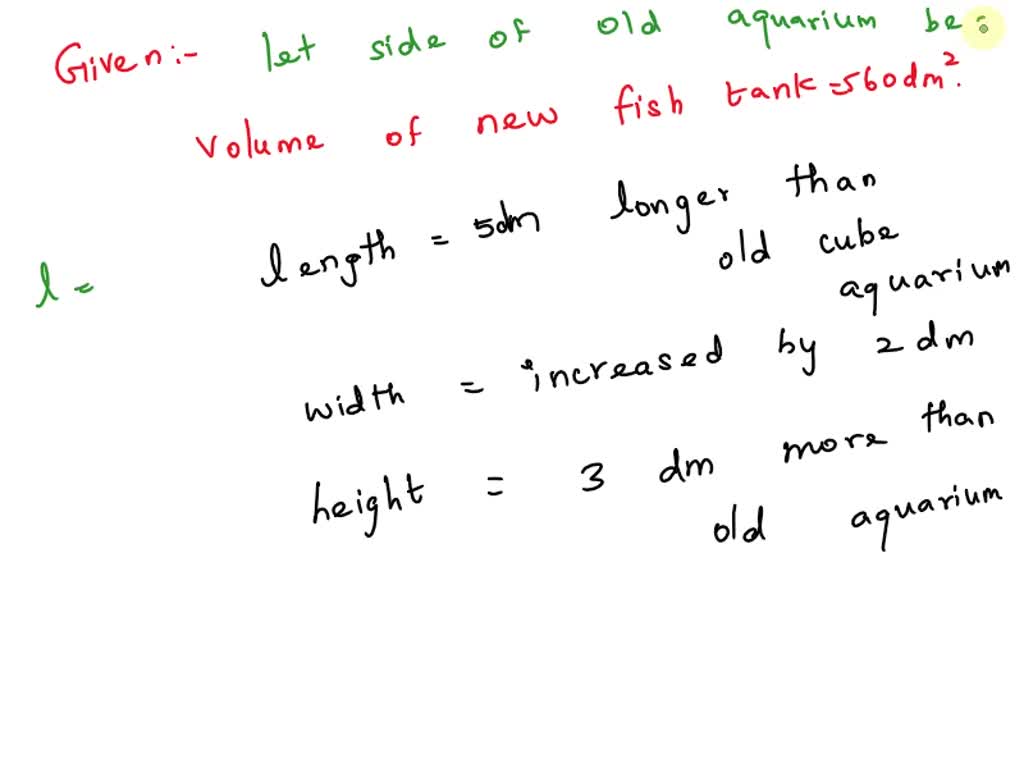 Given:- let side of old aquarium be
volume of new fish tank = 560dm².
length = 5dm longer than
old cube
aquarium
l =
width = increased by 2 dm
height = 3 dm more than
old aquarium